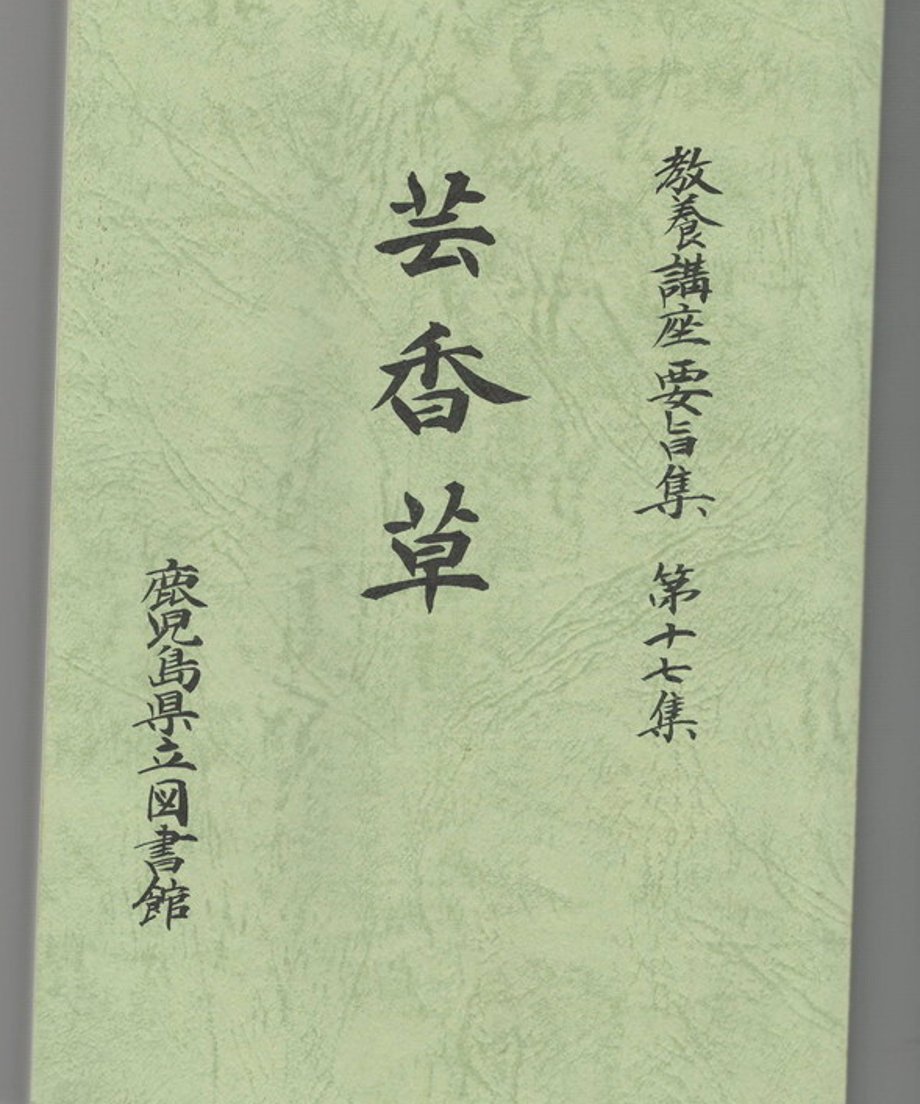 教養講座要旨集 第十七集
芸香草
鹿児島県立図書館